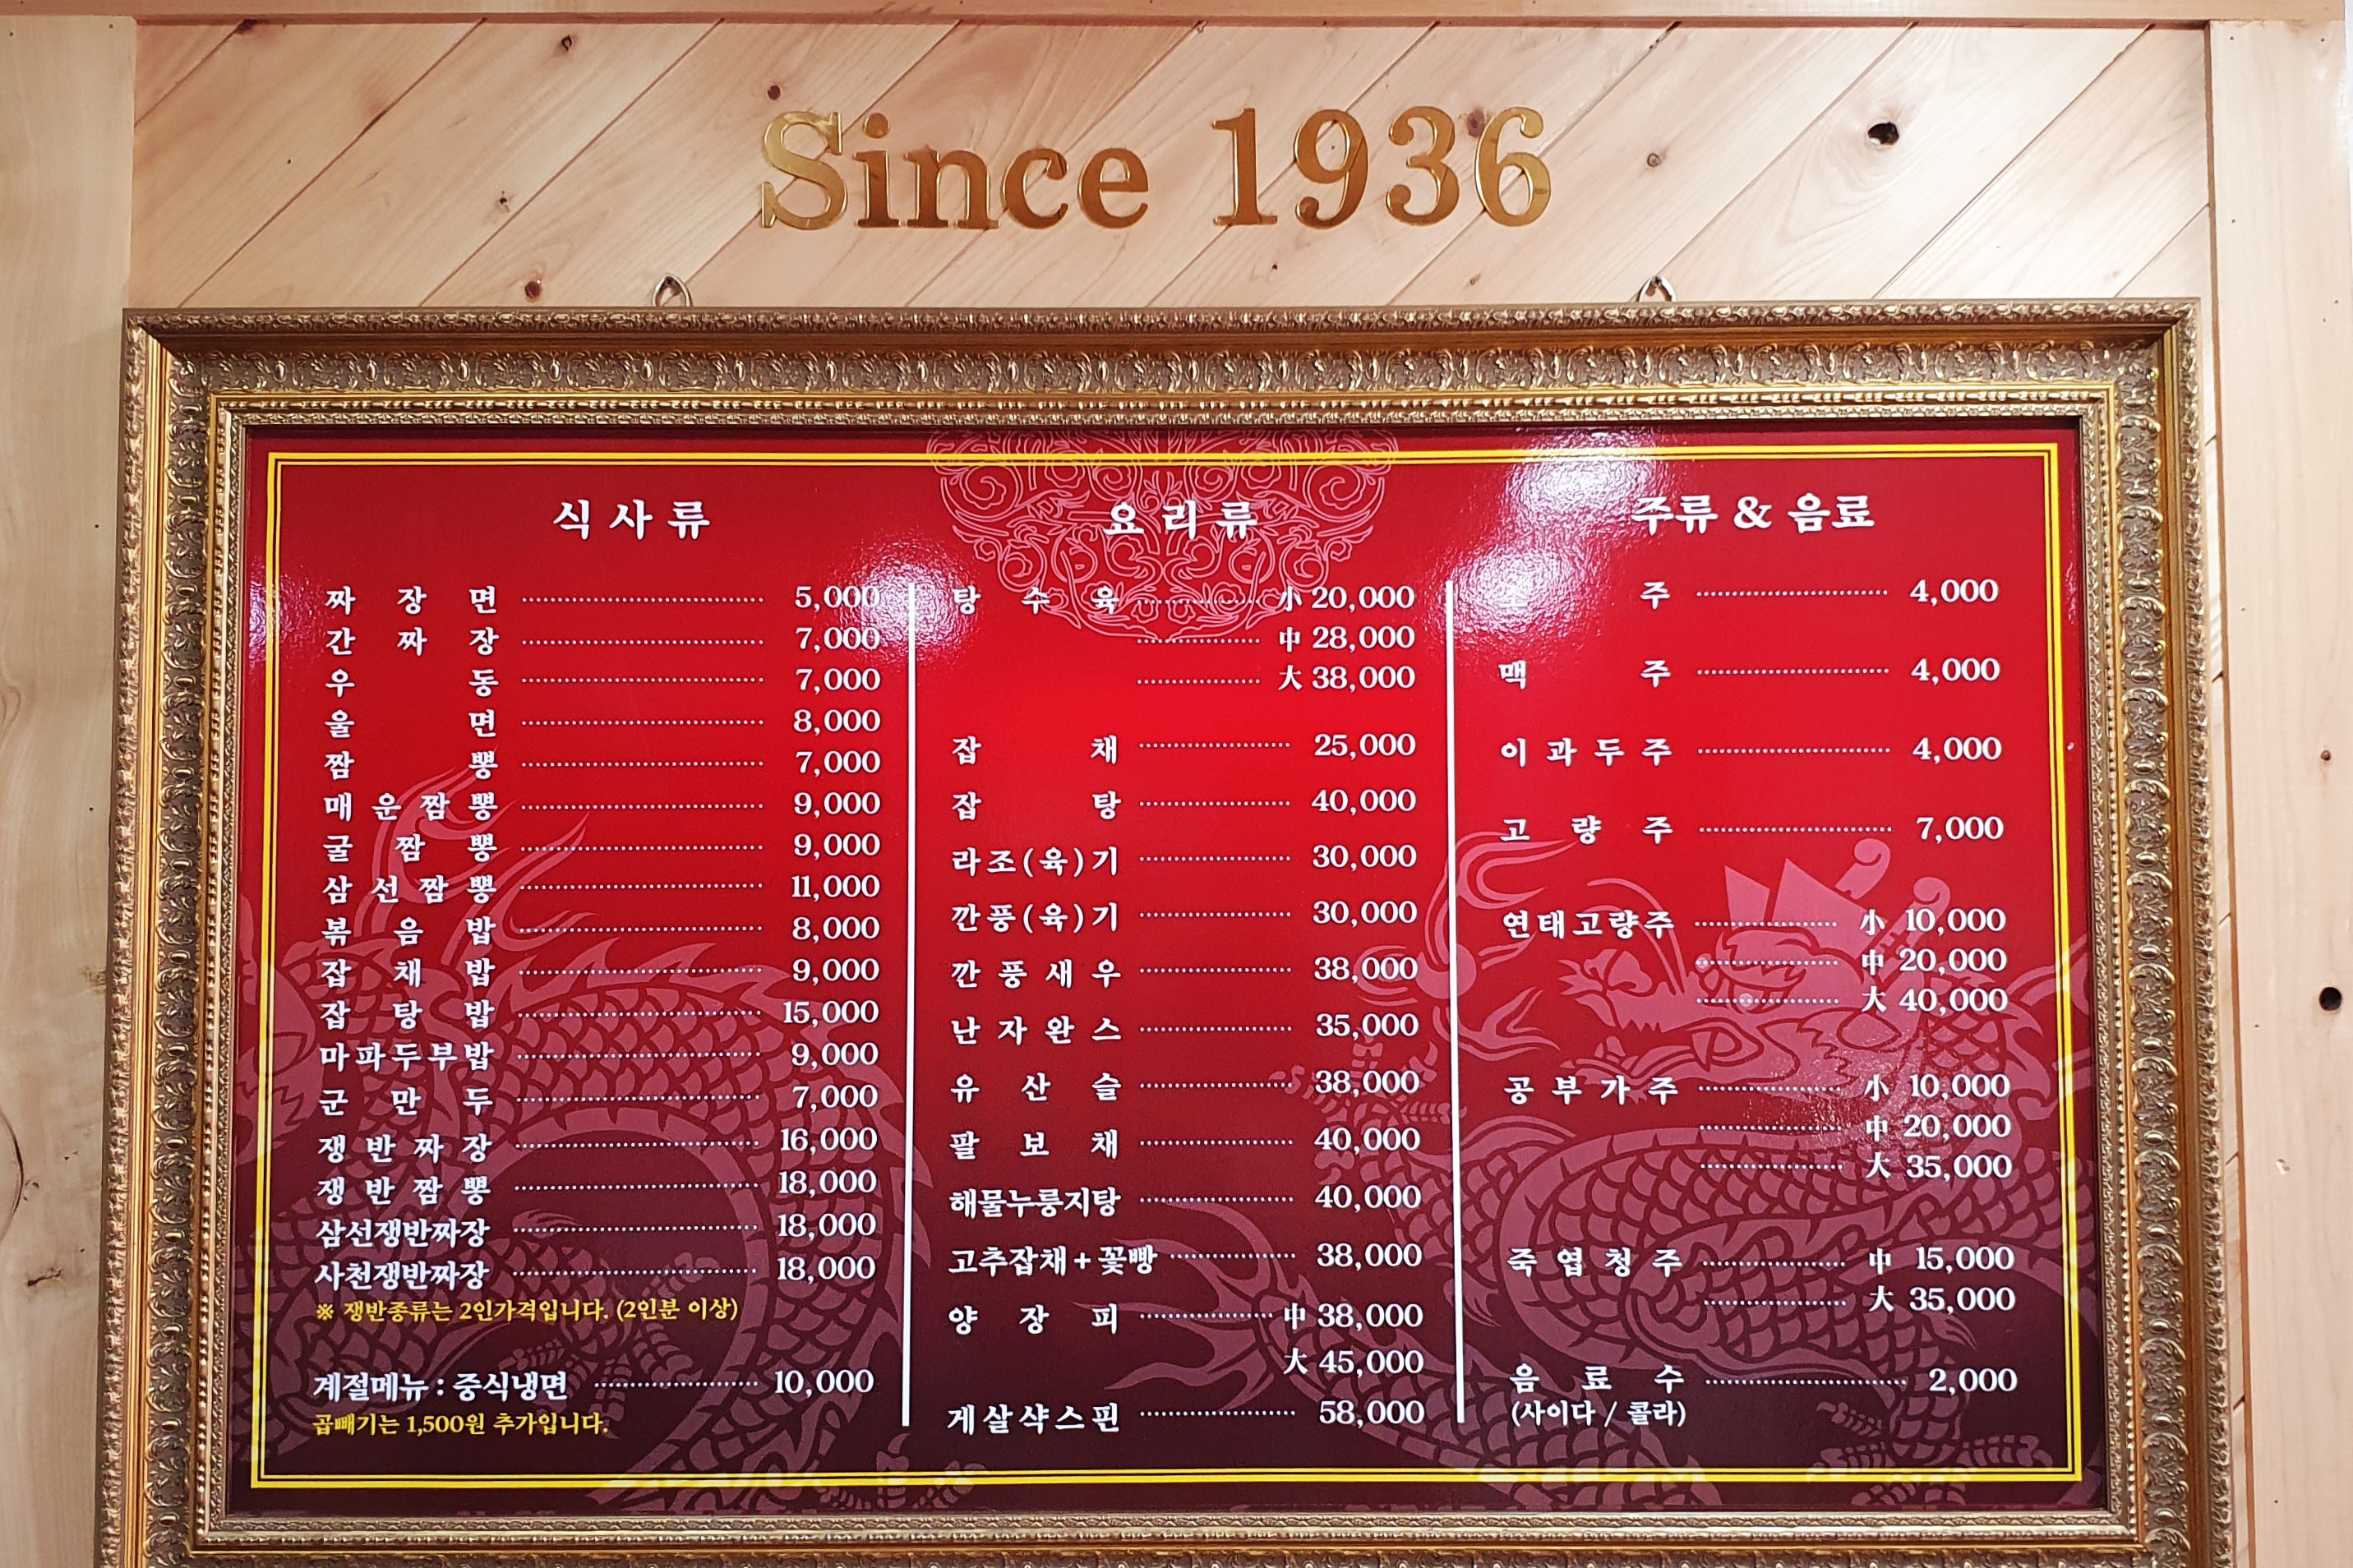 Since 1936
식사류
짜장면 5,000
간짜장 7,000
우동 7,000
울면 8,000
짬뽕 7,000
매운짬뽕 9,000
굴짬뽕 9,000
삼선짬뽕 11,000
볶음밥 8,000
잡채밥 9,000
잡탕밥 15,000
마파두부밥 9,000
군만두 7,000
쟁반짜장 16,000
쟁반짬뽕 18,000
삼선쟁반짜장 18,000
사천쟁반짜장 18,000
※ 쟁반종류는 2인가격입니다. (2인분 이상)
계절메뉴 : 중식냉면 10,000
곱빼기는 1,500원 추가입니다.
요리류
탕수육 小 20,000
中 28,000
大 38,000
잡채 25,000
잡탕 40,000
라조(육)기 30,000
깐풍(육)기 30,000
깐풍새우 38,000
난자완스 35,000
유산슬 38,000
팔보채 40,000
해물누룽지탕 40,000
고추잡채+꽃빵 38,000
양장피 中 38,000
大 45,000
게살샥스핀 58,000
주류 & 음료
소주 4,000
맥주 4,000
이과두주 4,000
고량주 7,000
연태고량주 小 10,000
中 20,000
大 40,000
공부가주 小 10,000
中 20,000
大 35,000
죽엽청주 中 15,000
大 35,000
음료수 2,000
(사이다 / 콜라)